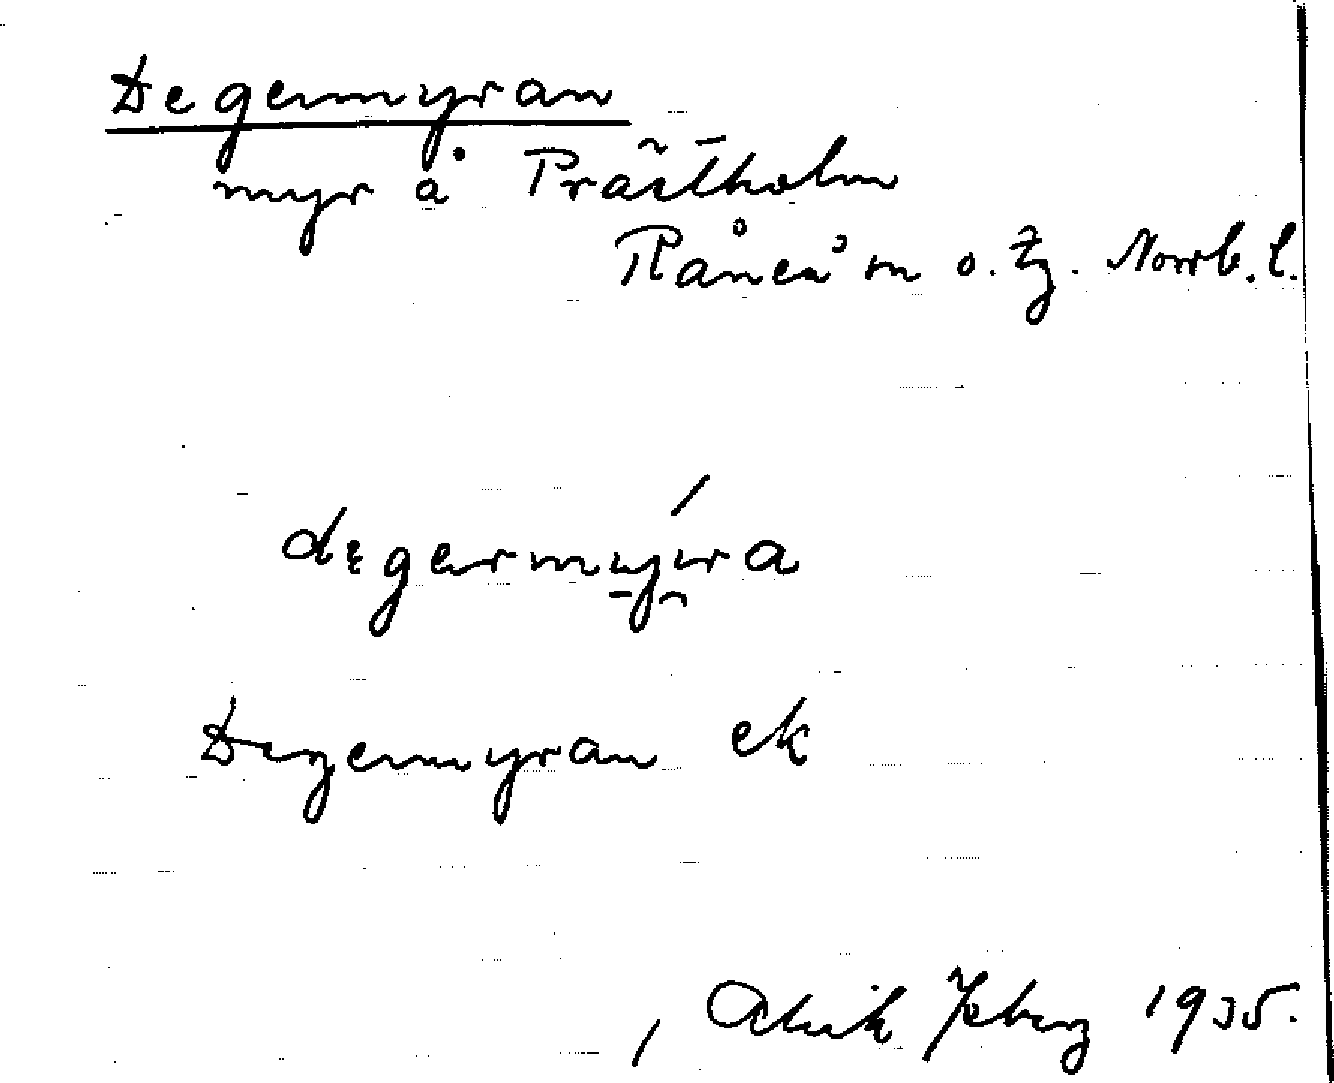 Degermyran
myr å Prästholm
Råneå sn o. tg. Norrb. l.
degermyra
Degermyran ek
1935.